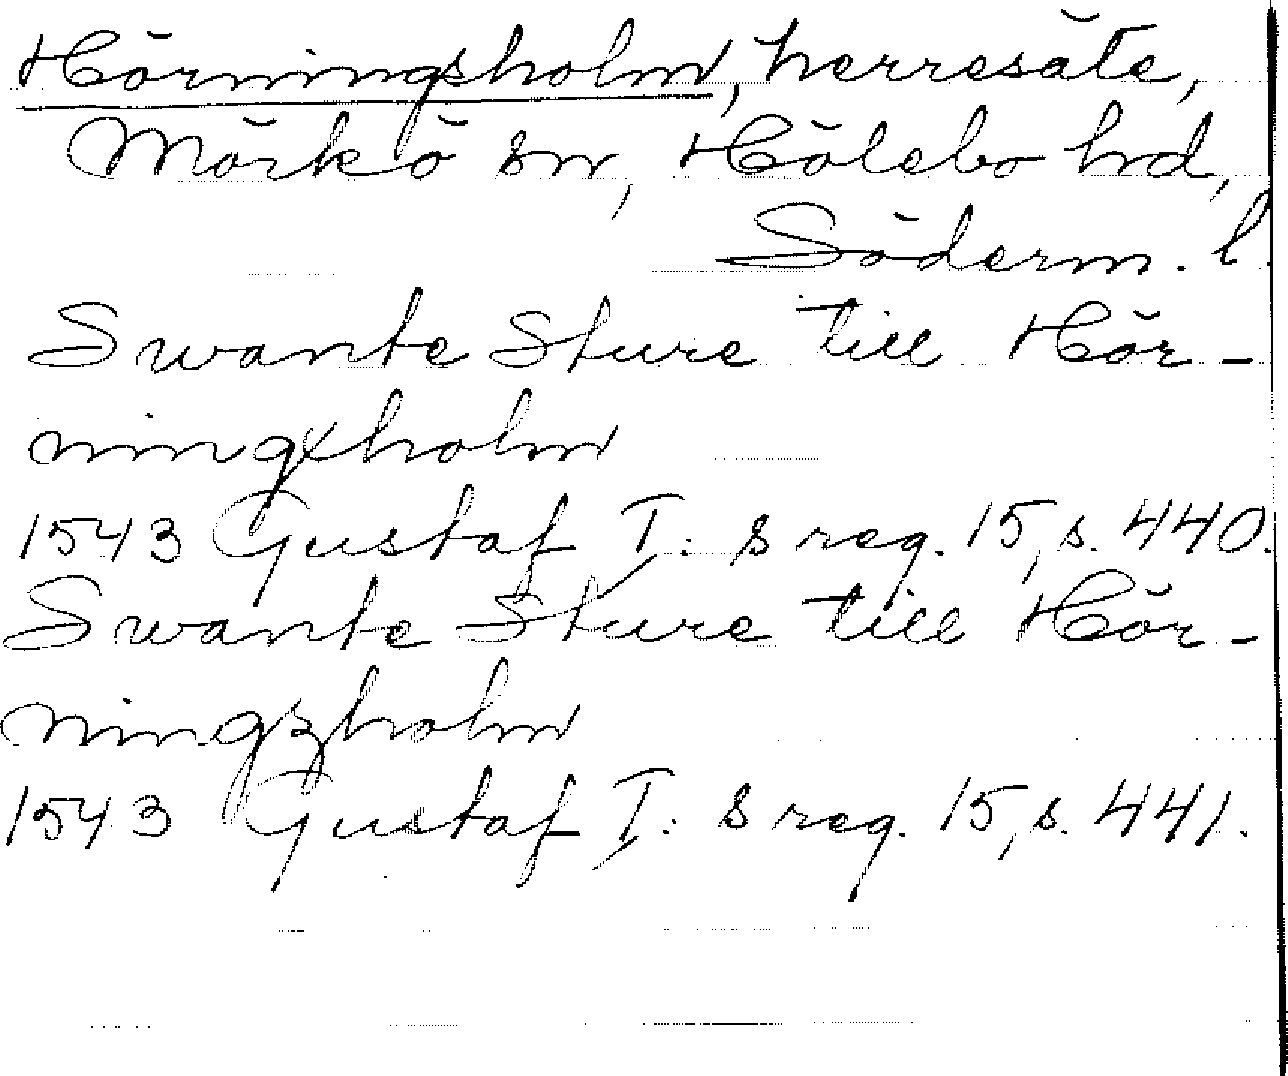 Hörningsholm, herresäte,
Mörkö sn, Hölebo hrd,
Söderm. l.
Swante Sture till Hör-
ningxholm
1543 Gustaf I: s reg. 15, s. 440.
Swante Sture till Hör-
ningzholm
1543 Gustaf I: s reg. 15, s. 441.